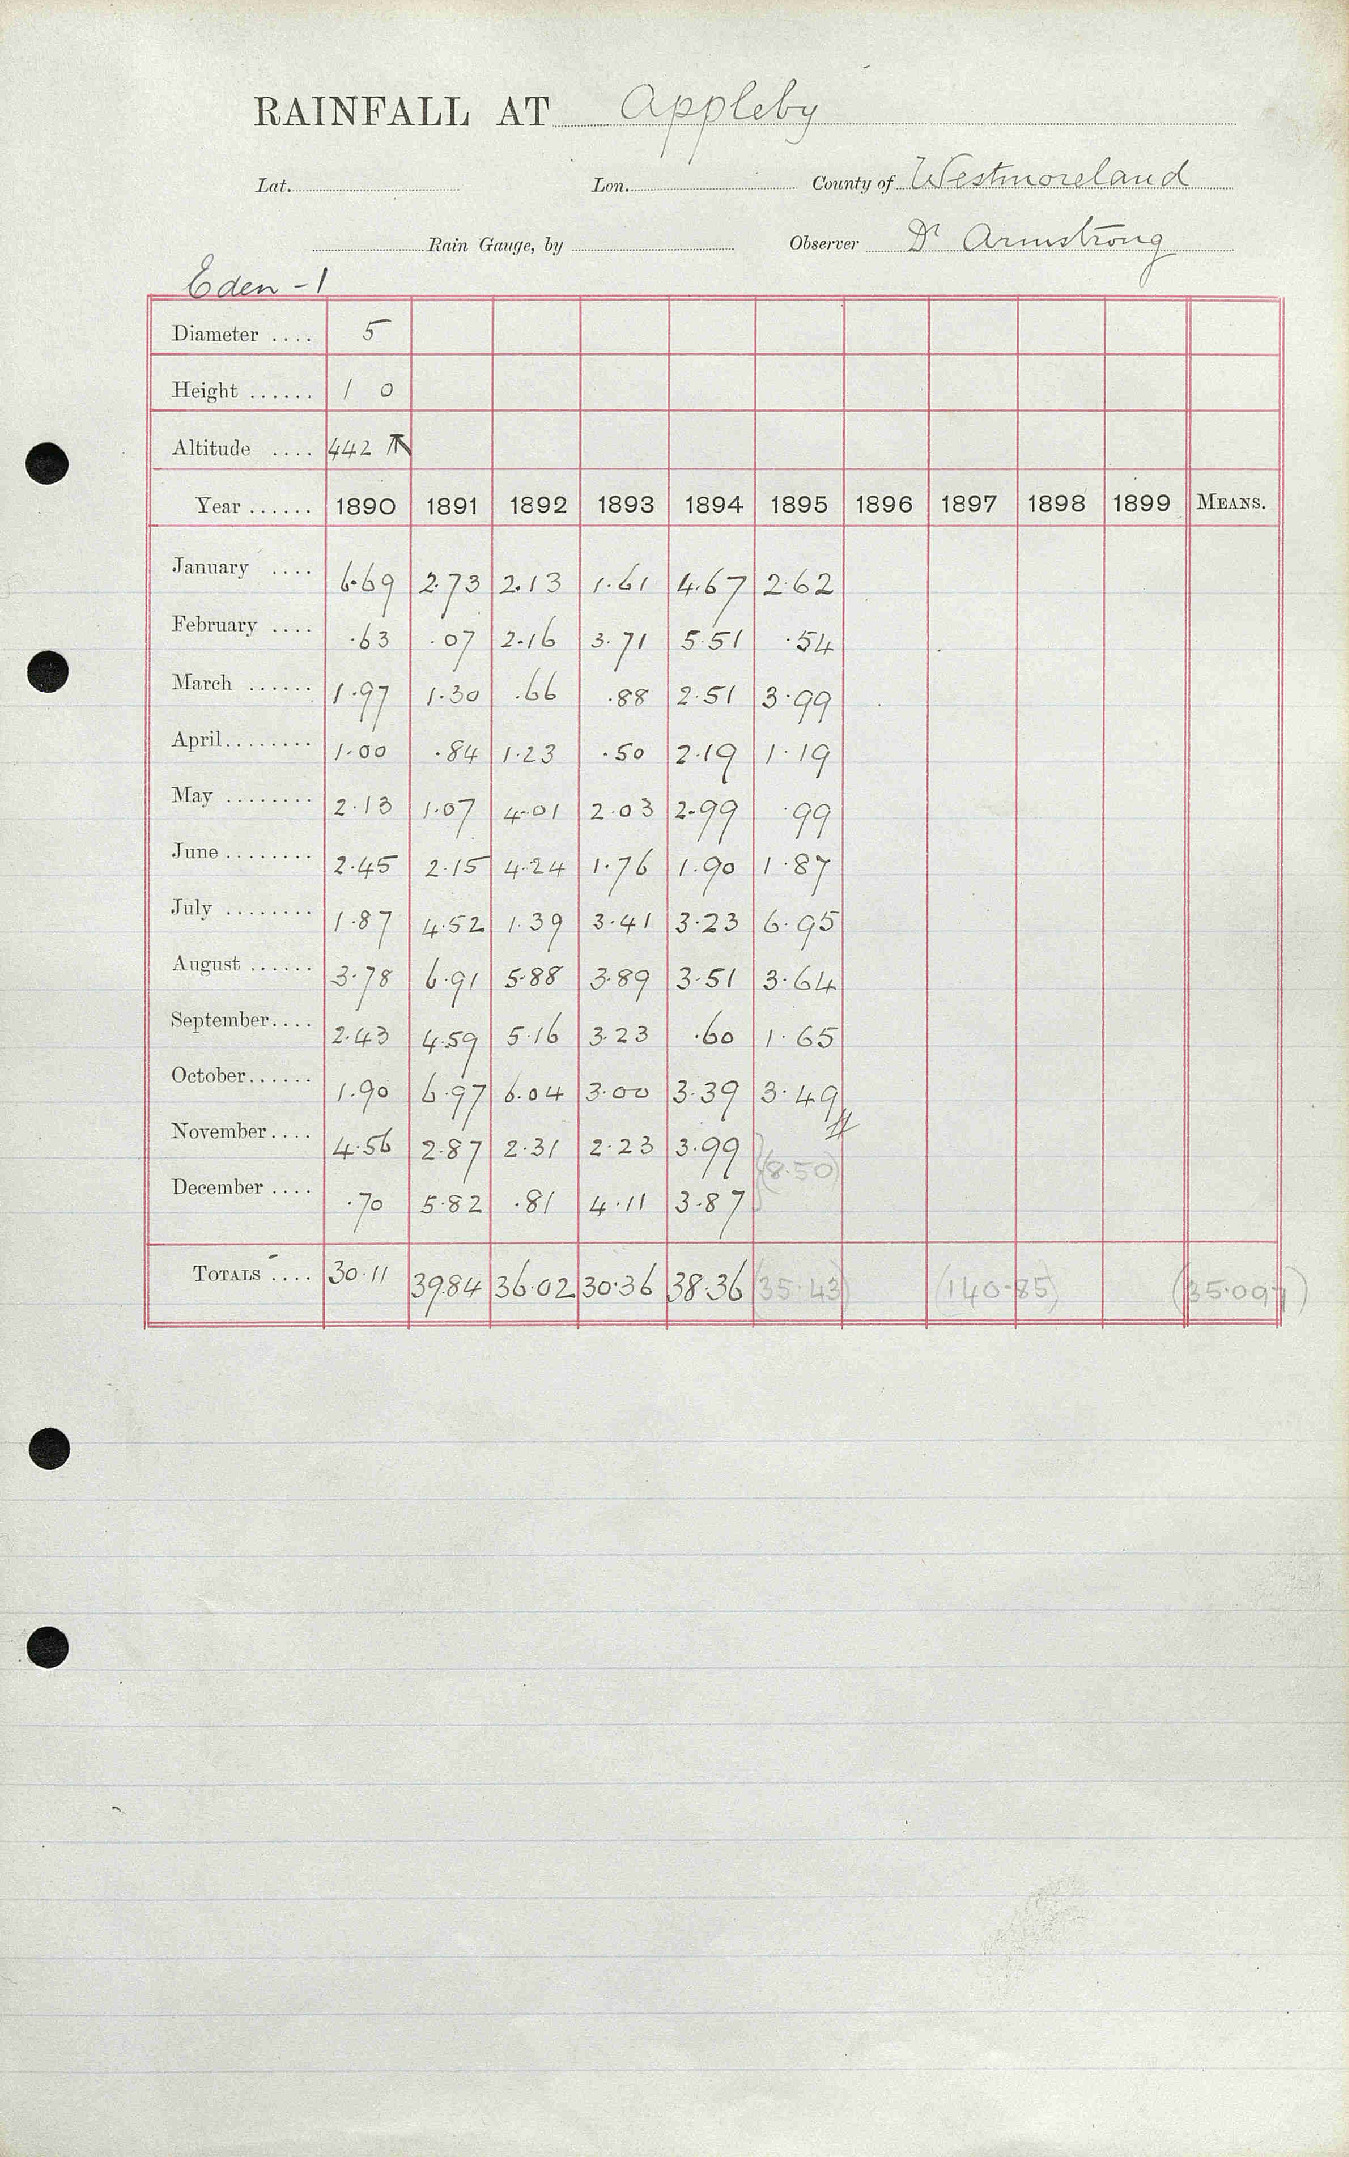 RAINFALL AT Appleby
Lat. Lon. County of Westmoreland
Rain Gauge, by Observer Dr Armstrong
Eden - 1
Diameter .... 5
Height ...... 1 0
Altitude .... 442
Year ...... 1890 1891 1892 1893 1894 1895 1896 1897 1898 1899 MEANS.
January .... 6.69 2.73 2.13 1.61 4.67 2.62
February .... .63 .07 2.16 3.71 5.51 .54
March ...... 1.97 1.30 .66 .88 2.51 3.99
April........ 1.00 .84 1.23 .50 2.19 1.19
May ........ 2.13 1.07 4.01 2.03 2.99 .99
June ........ 2.45 2.15 4.24 1.76 1.90 1.87
July ........ 1.87 4.52 1.39 3.41 3.23 6.95
August ...... 3.78 6.91 5.88 3.89 3.51 3.64
September.... 2.43 4.59 5.16 3.23 .60 1.65
October...... 1.90 6.97 6.04 3.00 3.39 3.49
November.... 4.56 2.87 2.31 2.23 3.99
(8.50)
December .... .70 5.82 .81 4.11 3.87
TOTALS .... 30.11 39.84 36.02 30.36 38.36 (35.43) (140.85) (35.097)